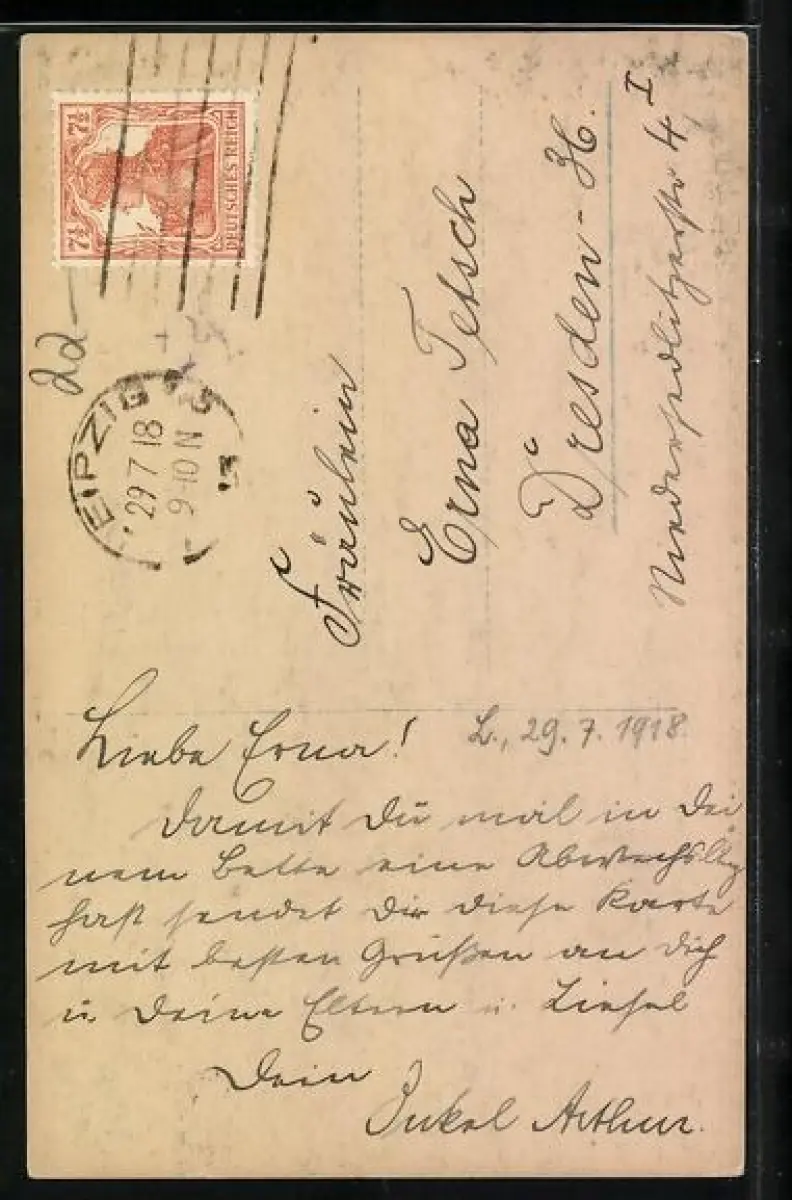 7½ 7½
DEUTSCHES REICH
LEIPZIG
29 7 18
9-10 N
Fräulein
Erna Tetsch
Dresden-N.
Niedersedlitzerstr 4 I
Liebe Erna! L., 29.7.1918
Damit Du mal in Dei
nem Bette eine Abwechslg
hast sendet Dir diese Karte
mit besten Grüßen an Dich
u. Deine Eltern u. Liesel
Dein
Onkel Arthur.